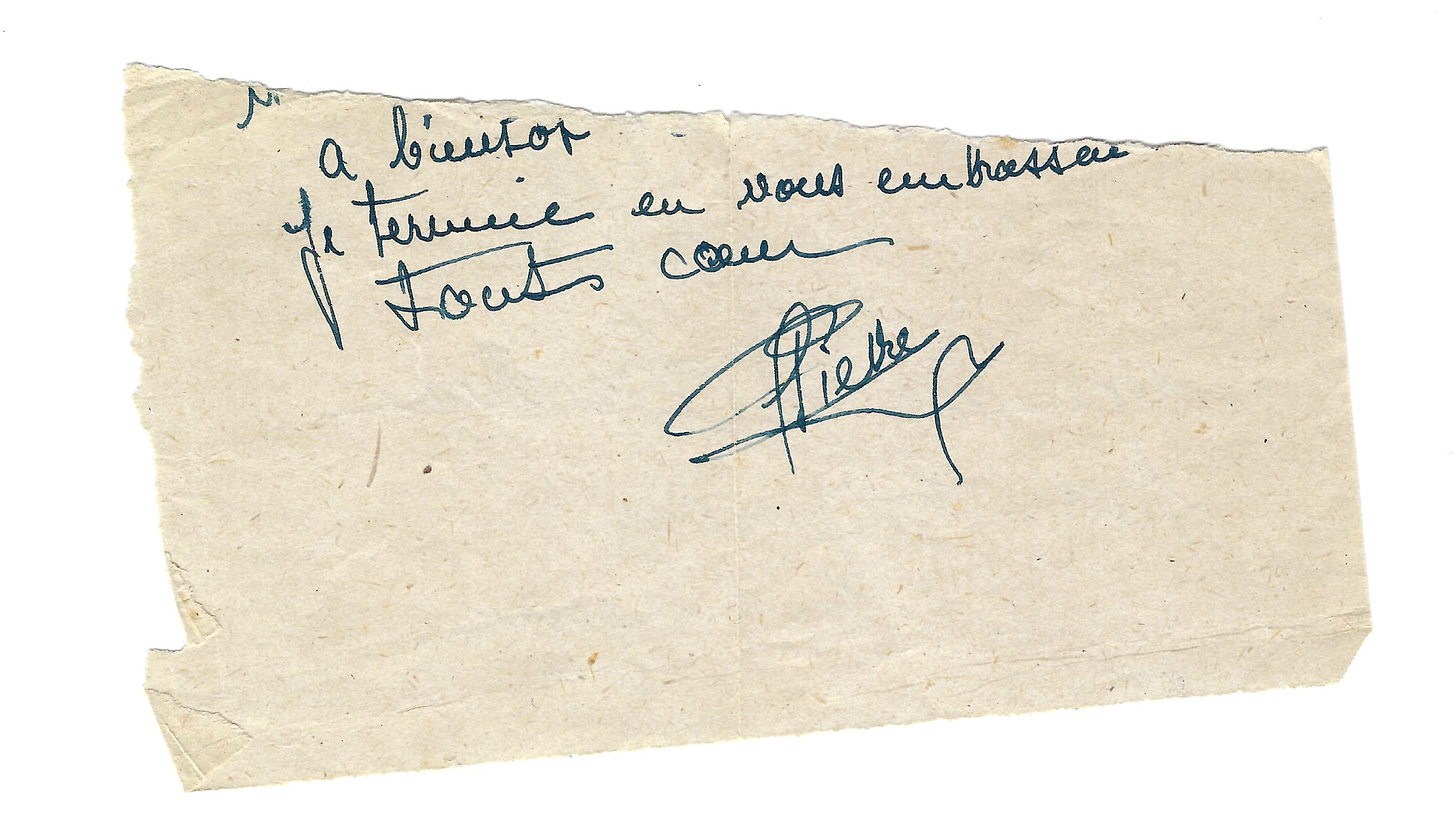 a bientot
Je termine en vous embrassan
tous coeur
Pierre